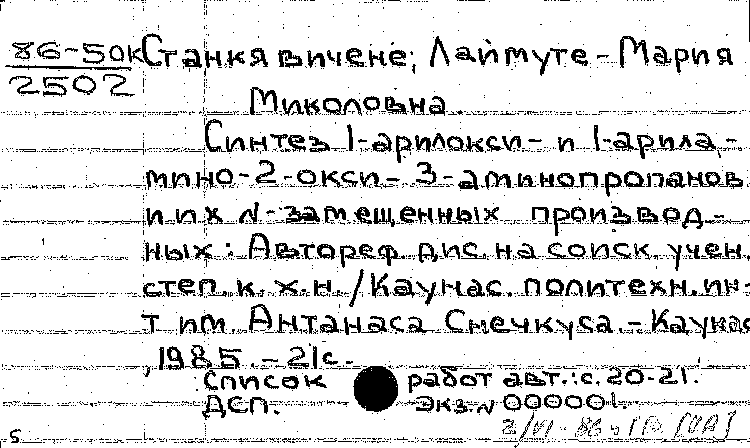 86-50к
2502
Станкявичене, Лаймуте-Мария
Миколовна.
Синтез 1-арилокси- и 1-арила-
мино-2-окси-3-аминопропанов
и их N-замещенных производ-
ных: Автореф. дис. на соиск. учен.
степ. к. х. н. / Каунас. политехн. ин-
т им. Антанаса Снечкуса. - Каунас
, 1985. - 21 с.
Список работ авт.: с. 20-21.
ДСП. Экз. N 000001.
5